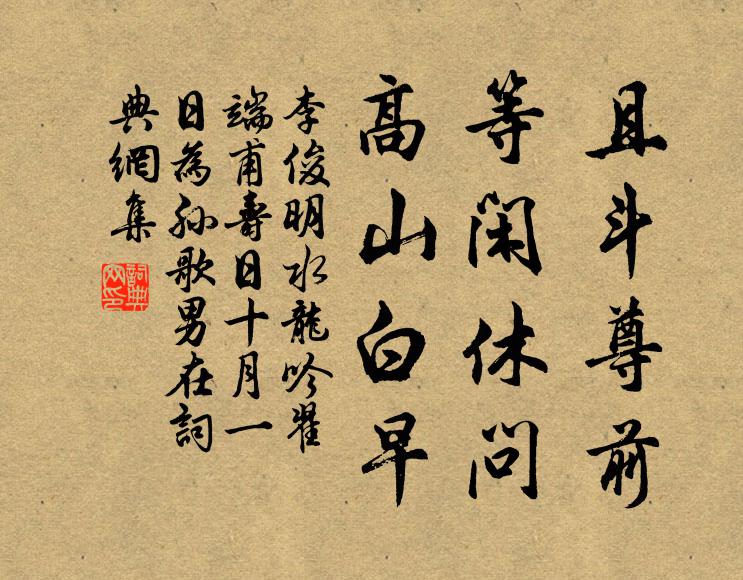 且斗尊前
等闲休問
高山白早
李俊明水龍吟翟
端甫壽日十月一
日為孙歌男在詞
典網集
詞典網印